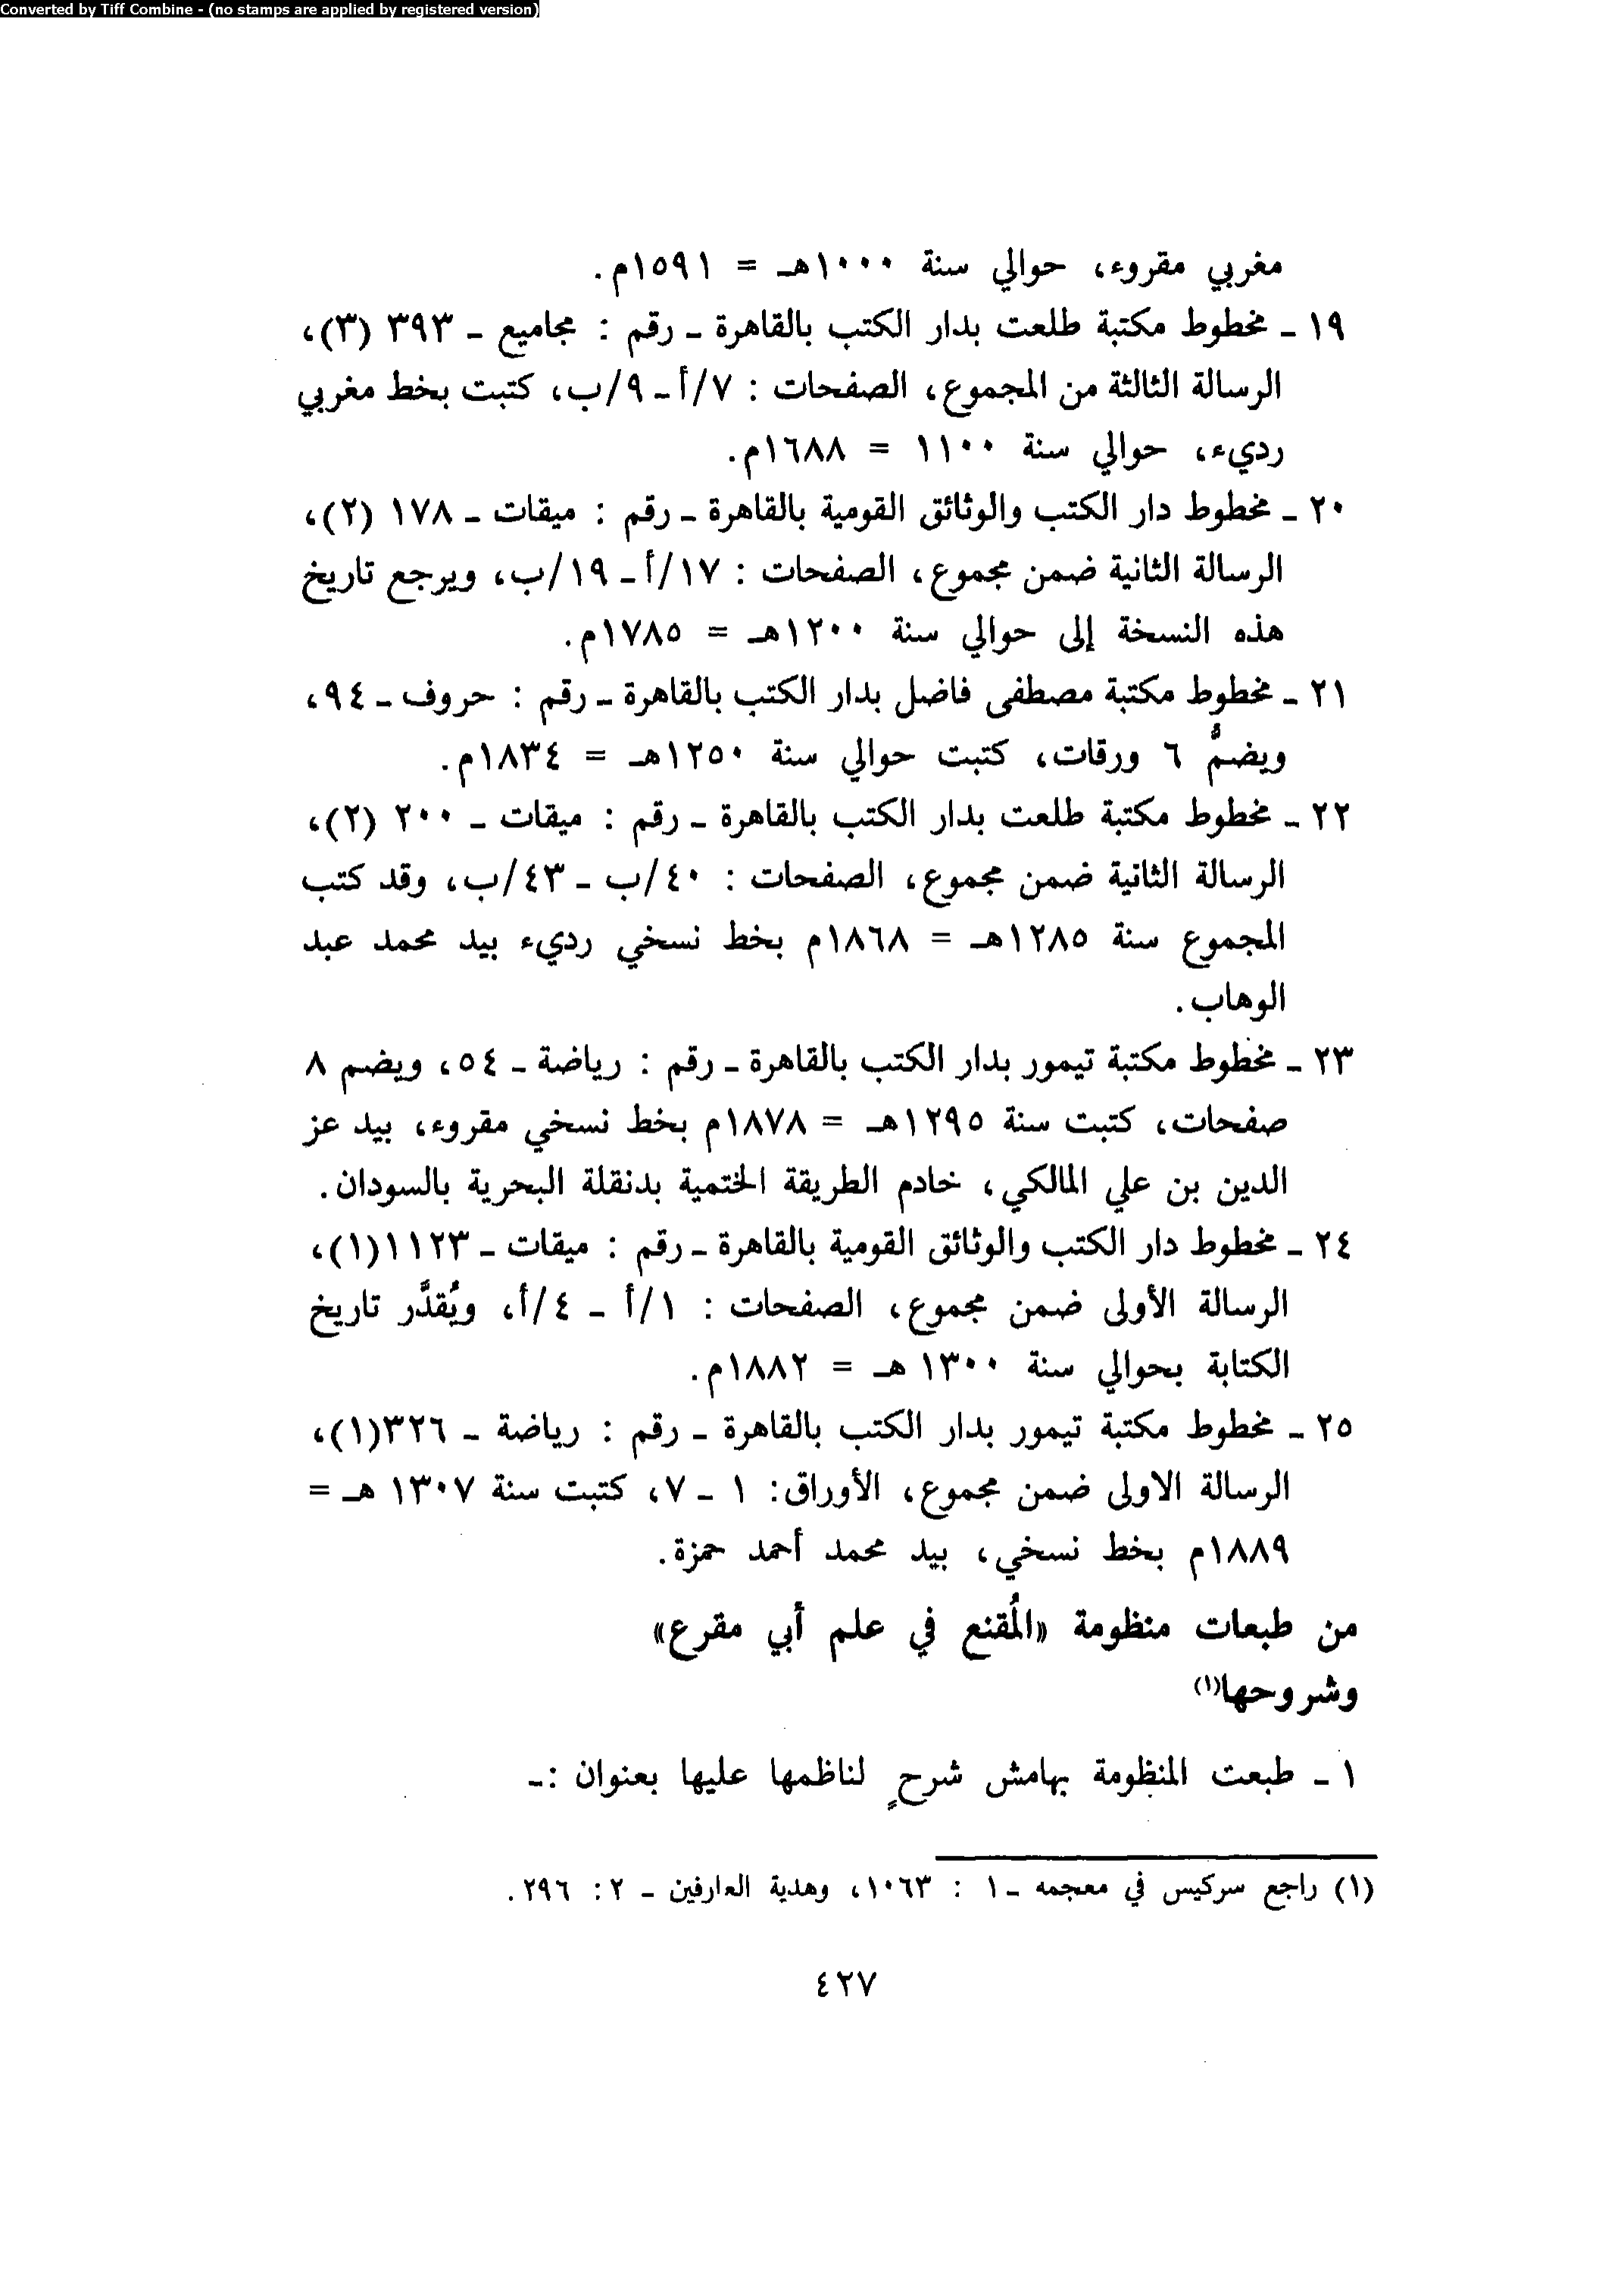 Converted by Tiff Combine - (no stamps are applied by registered version)
مغربي مقروء، حوالي سنة ١٠٠٠هـ = ١٥٩١م.
١٩ ـ مخطوط مكتبة طلعت بدار الكتب بالقاهرة ـ رقم : مجاميع ـ ٣٩٣ (٣)،
الرسالة الثالثة من المجموع، الصفحات : ٧/أ ـ ٩/ب، كتبت بخط مغربي
رديء، حوالي سنة ١١٠٠ = ١٦٨٨م.
٢٠ ـ مخطوط دار الكتب والوثائق القومية بالقاهرة ـ رقم : ميقات ـ ١٧٨ (٢)،
الرسالة الثانية ضمن مجموع، الصفحات : ١٧/أ ـ ١٩/ب، ويرجع تاريخ
هذه النسخة إلى حوالي سنة ١٢٠٠هـ = ١٧٨٥م.
٢١ ـ مخطوط مكتبة مصطفى فاضل بدار الكتب بالقاهرة ـ رقم : حروف ـ ٩٤،
ويضمُّ ٦ ورقات، كتبت حوالي سنة ١٢٥٠هـ = ١٨٣٤م.
٢٢ ـ مخطوط مكتبة طلعت بدار الكتب بالقاهرة ـ رقم : ميقات ـ ٢٠٠ (٢)،
الرسالة الثانية ضمن مجموع، الصفحات : ٤٠/ب ـ ٤٣/ب، وقد كتب
المجموع سنة ١٢٨٥هـ = ١٨٦٨م بخط نسخي رديء بيد محمد عبد
الوهاب.
٢٣ ـ مخطوط مكتبة تيمور بدار الكتب بالقاهرة ـ رقم : رياضة ـ ٥٤، ويضم ٨
صفحات، كتبت سنة ١٢٩٥هـ = ١٨٧٨م بخط نسخي مقروء، بيد عز
الدين بن علي المالكي، خادم الطريقة الختمية بدنقلة البحرية بالسودان.
٢٤ ـ مخطوط دار الكتب والوثائق القومية بالقاهرة ـ رقم : ميقات ـ ١١٢٣(١)،
الرسالة الأولى ضمن مجموع، الصفحات : ١/أ ـ ٤/أ، ويُقدَّر تاريخ
الكتابة بحوالي سنة ١٣٠٠ هـ = ١٨٨٢م.
٢٥ ـ مخطوط مكتبة تيمور بدار الكتب بالقاهرة ـ رقم : رياضة ـ ٣٢٦(١)،
الرسالة الاولى ضمن مجموع، الأوراق: ١ ـ ٧، كتبت سنة ١٣٠٧ هـ =
١٨٨٩م بخط نسخي، بيد محمد أحمد حمزة.
من طبعات منظومة «المُقنع في علم أبي مقرع»
وشروحها(١)
١ ـ طبعت المنظومة بهامش شرحٍ لناظمها عليها بعنوان :ـ
(١) راجع سركيس في معجمه ـ ١ : ١٠٦٣، وهدية العارفين ـ ٢ : ٢٩٦.
٤٢٧